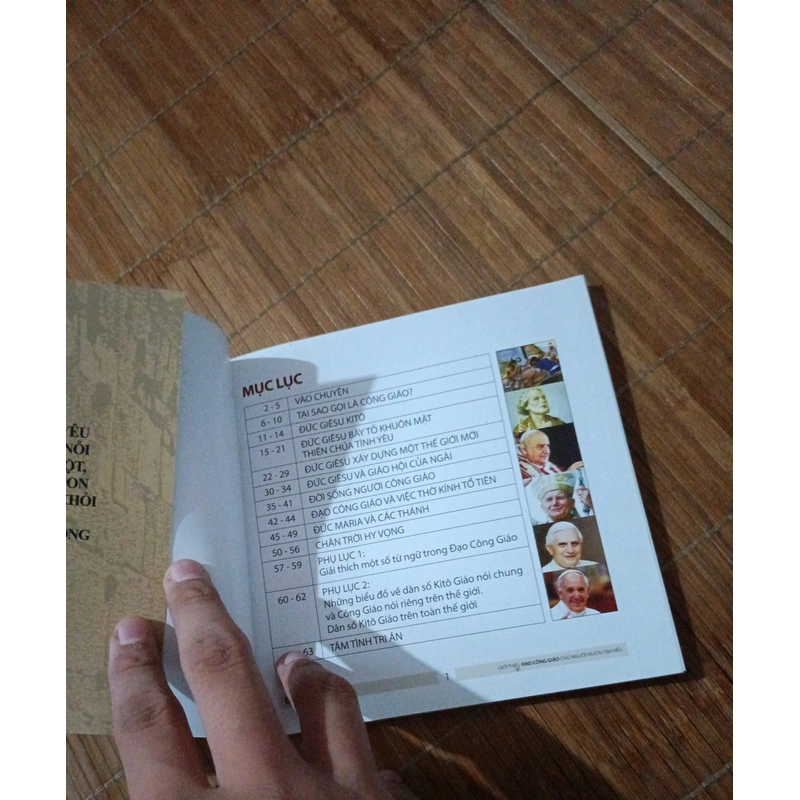 YÊU
NỖI
ỘT,
ON
KHỎI
ỌNG
MỤC LỤC
2 - 5 VÀO CHUYỆN
6 - 10 TẠI SAO GỌI LÀ CÔNG GIÁO?
11 - 14 ĐỨC GIÊSU KITÔ
15 - 21 ĐỨC GIÊSU BÀY TỎ KHUÔN MẶT
THIÊN CHÚA TÌNH YÊU
22 - 29 ĐỨC GIÊSU XÂY DỰNG MỘT THẾ GIỚI MỚI
30 - 34 ĐỨC GIÊSU VÀ GIÁO HỘI CỦA NGÀI
35 - 41 ĐỜI SỐNG NGƯỜI CÔNG GIÁO
42 - 44 ĐẠO CÔNG GIÁO VÀ VIỆC THỜ KÍNH TỔ TIÊN
45 - 49 ĐỨC MARIA VÀ CÁC THÁNH
50 - 56 CHÂN TRỜI HY VỌNG
57 - 59 PHỤ LỤC 1:
Giải thích một số từ ngữ trong Đạo Công Giáo
60 - 62 PHỤ LỤC 2:
Những biểu đồ về dân số Kitô Giáo nói chung
và Công Giáo nói riêng trên thế giới.
Dân số Kitô Giáo trên toàn thế giới
63 TÂM TÌNH TRI ÂN
1 GIỚI THIỆU ĐẠO CÔNG GIÁO CHO NGƯỜI MUỐN TÌM HIỂU